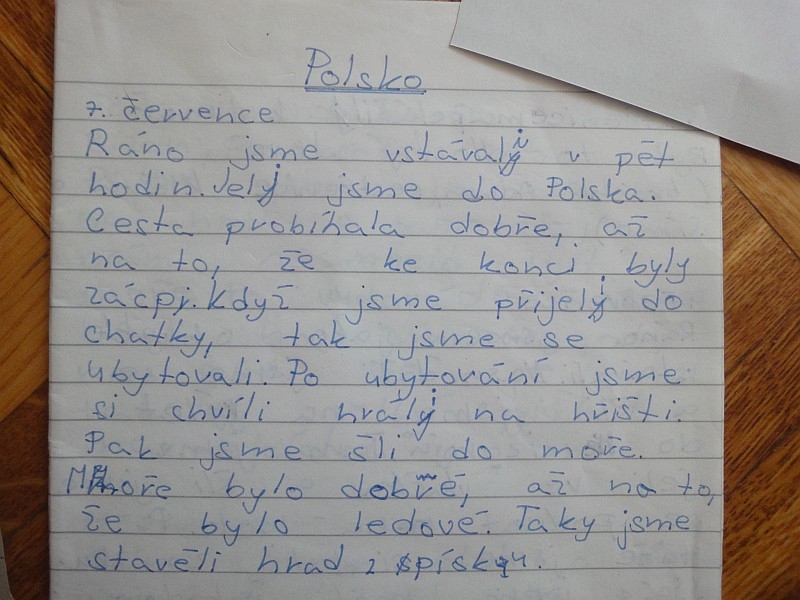 Polsko
7. července
Ráno jsme vstávali v pět
hodin. Jeli jsme do Polska.
Cesta probíhala dobře, až
na to, že ke konci byly
zácpy. když jsme přijeli do
chatky, tak jsme se
ubytovali. Po ubytování jsme
si chvíli hráli na hřišti.
Pak jsme šli do moře.
Moře bylo dobré, až na to,
že bylo ledové. Taky jsme
stavěli hrad z písku.